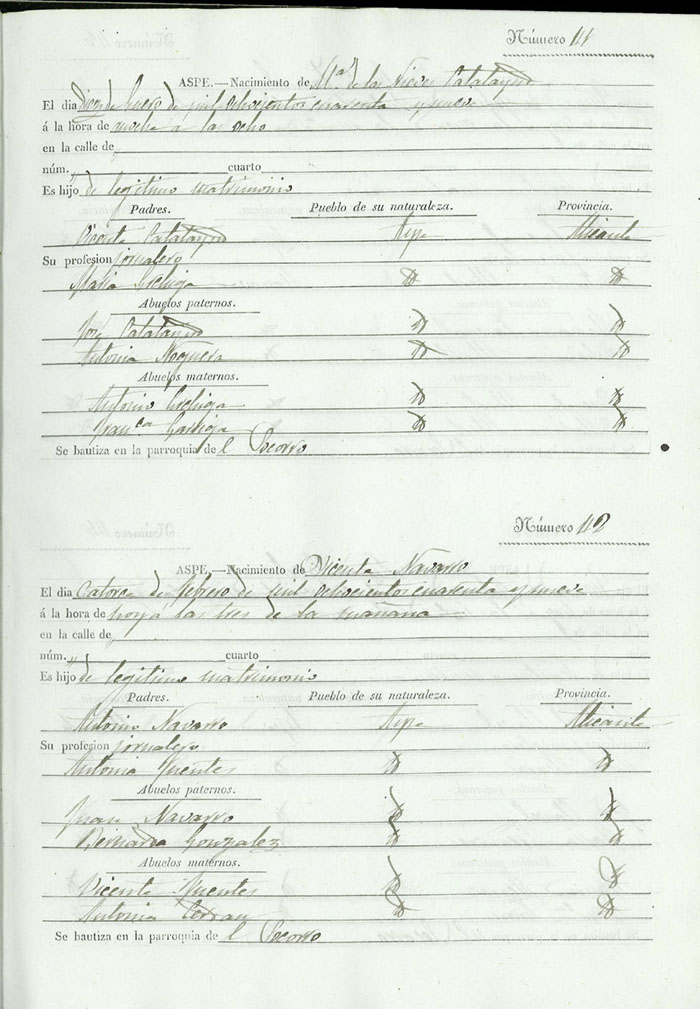 Número 111
ASPE.—Nacimiento de M.ª de la Nieves Calatayud
El dia Diez de Enero de mil ochocientos cuarenta y nueve
á la hora de noche a las ocho
en la calle de „
núm. „ cuarto
Es hijo de legitimo matrimonio
Padres. Pueblo de su naturaleza. Provincia.
Vicente Calatayud Aspe Alicante
Su profesion jornalero
Maria
Abuelos paternos.
José Calatayud
Antonia Noguera
Abuelos maternos.
Antonio
Fran.ca
Se bautiza en la parroquia de l Socorro
Número 112
ASPE.—Nacimiento de Vicente Navarro
El dia Catorce de Febrero de mil ochocientos cuarenta y nueve
á la hora de hoy a las tres de la mañana
en la calle de „
núm. „ cuarto
Es hijo de legitimo matrimonio
Padres. Pueblo de su naturaleza. Provincia.
Antonio Navarro Aspe Alicante
Su profesion jornalero
Antonia Fuentes
Abuelos paternos.
Juan Navarro
Bernarda Gonzalez
Abuelos maternos.
Vicente Fuentes
Antonia
Se bautiza en la parroquia de l Socorro